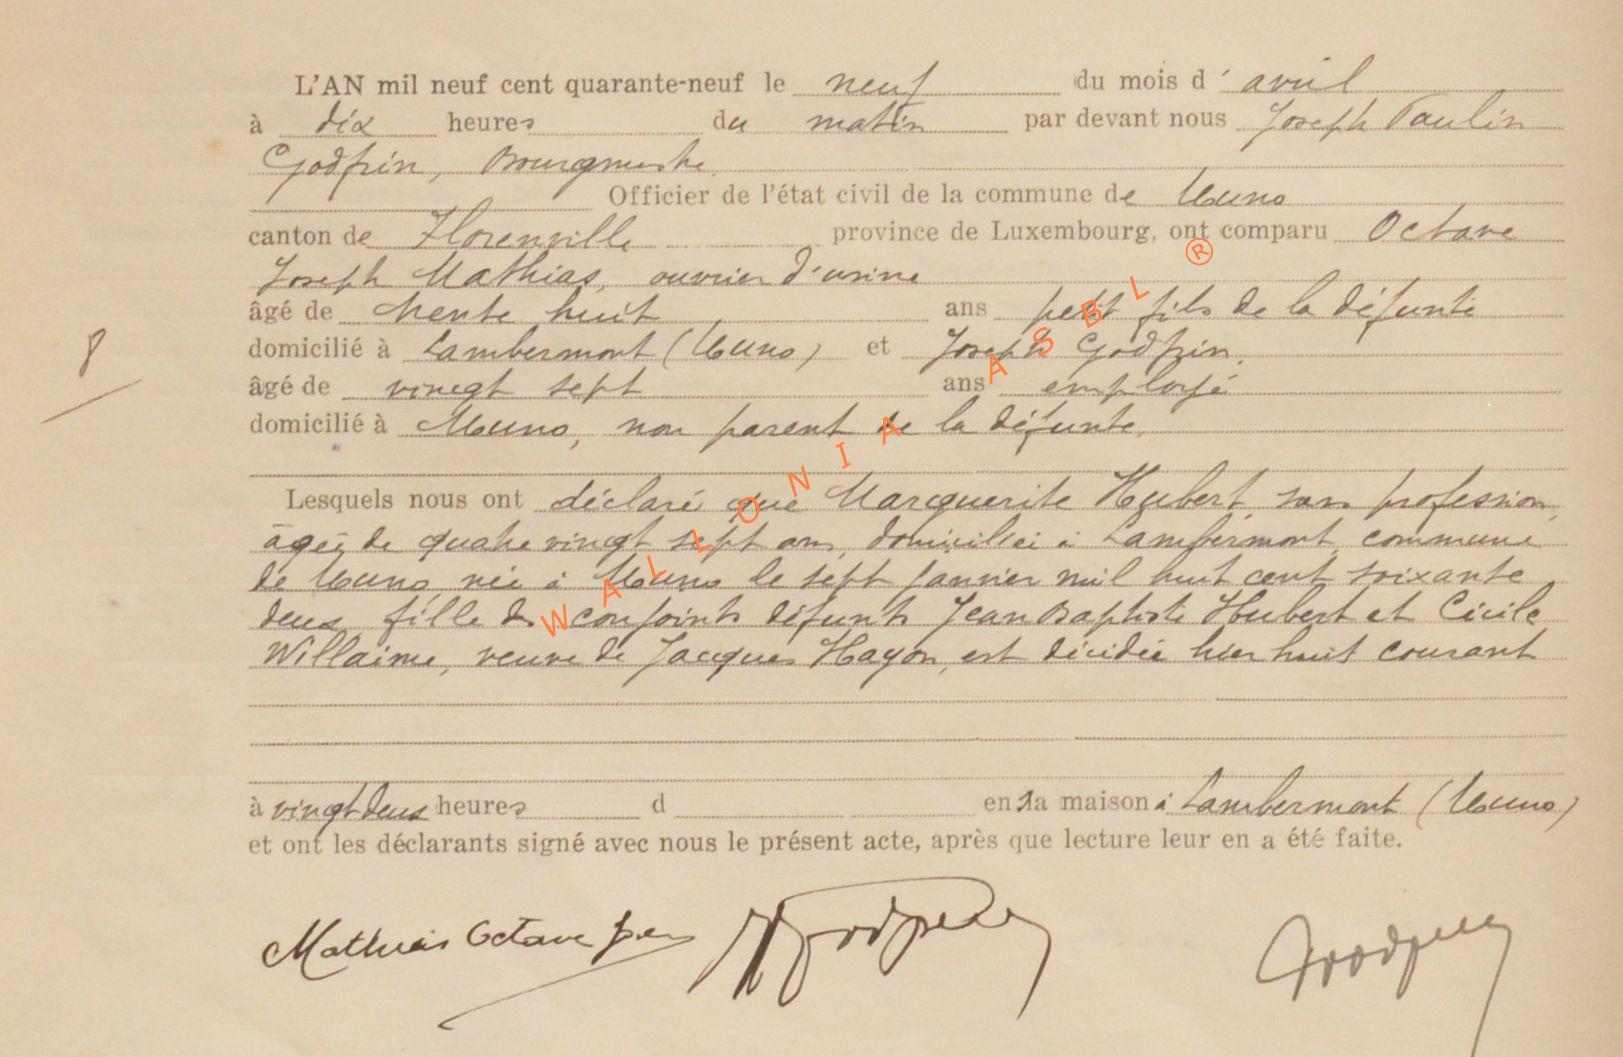 L'AN mil neuf cent quarante-neuf le neuf du mois d' avril
à dix heures du matin par devant nous Joseph Paulin
Godfrin, Bourgmestre
Officier de l'état civil de la commune de Muno
canton de Florenville province de Luxembourg, ont comparu Octave
Joseph Mathias, ouvrier d'usine
âgé de trente huit ans petit fils de la défunte
8
domicilié à Lambermont (Muno) et Joseph Godfrin,
âgé de vingt sept ans employé
domicilié à Muno, non parent de la défunte,
Lesquels nous ont déclaré que Marguerite Hubert, sans profession,
âgée de quatre vingt sept ans, domiciliée à Lambermont, commune
de Muno, née à Muno le sept janvier mil huit cent soixante
deux, fille des conjoints défunts Jean Baptiste Hubert et Cécile
Willaime, veuve de Jacques Hayon, est décédée hier huit courant
à vingt deux heures d en sa maison à Lambermont (Muno)
et ont les déclarants signé avec nous le présent acte, après que lecture leur en a été faite.
Mathias Octave Godfrin Godfrin
WALLONIA ASBL ®